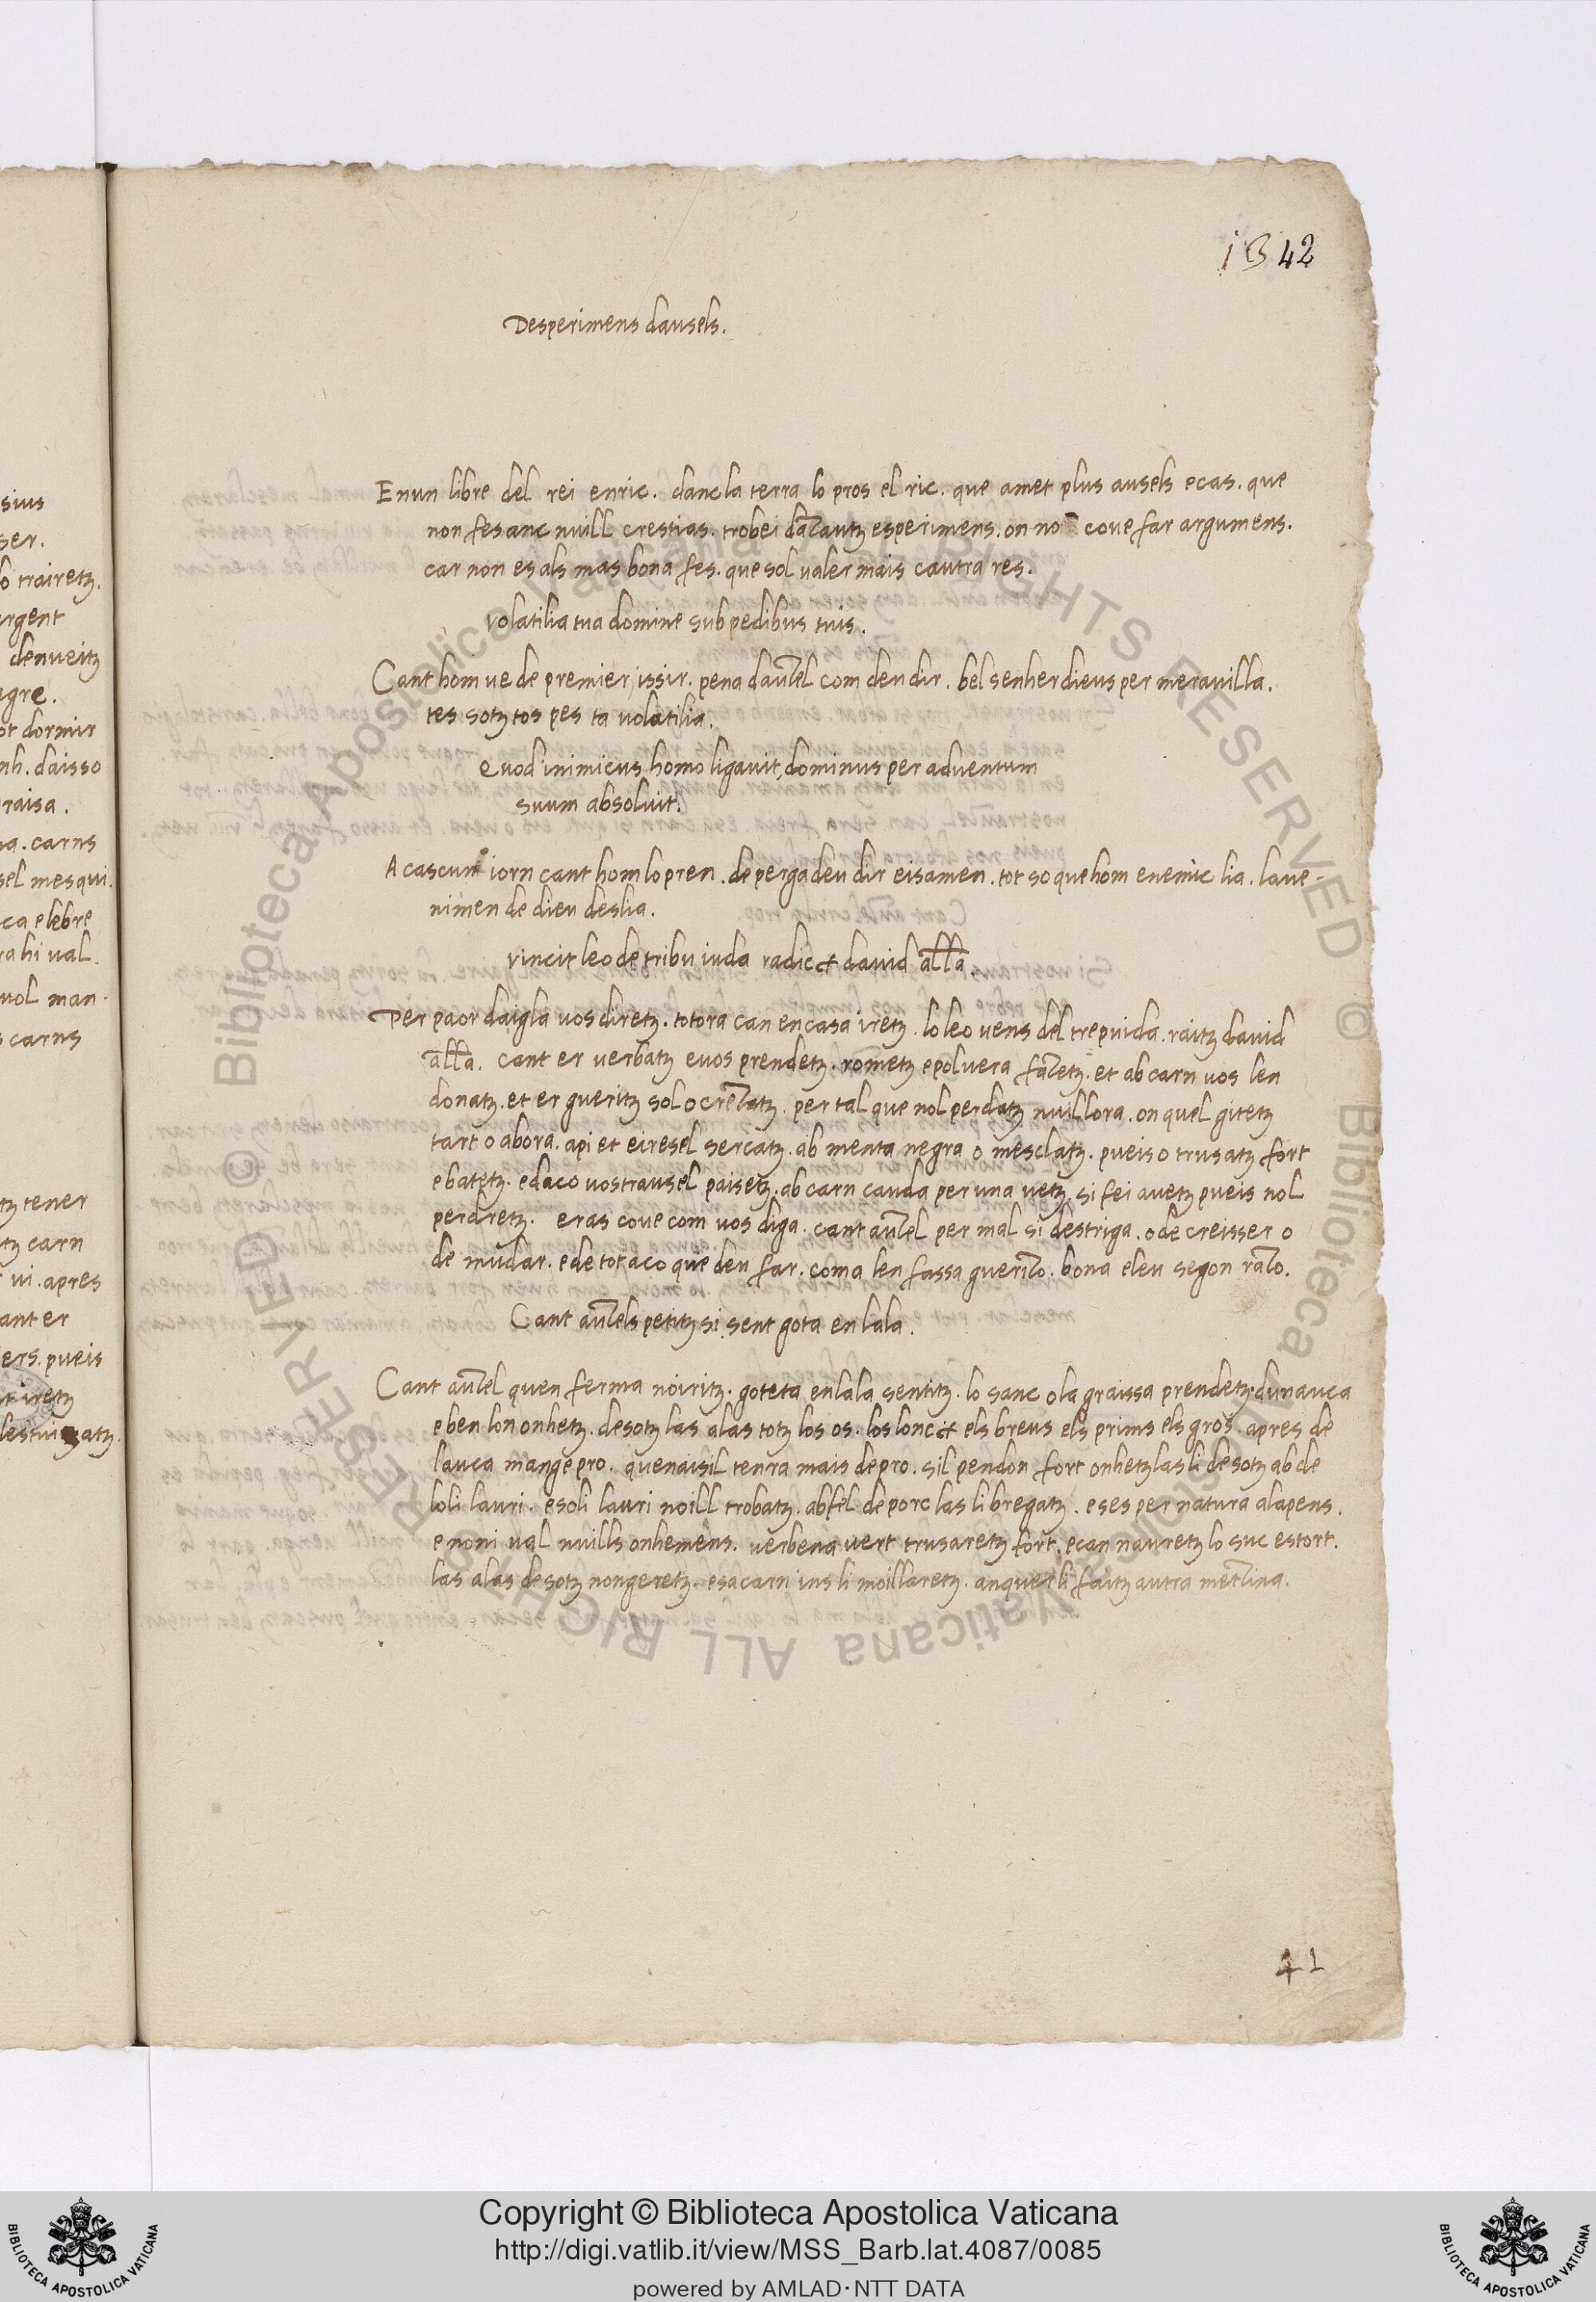 sius
ser.
lo trairetz.
argent
denueitz
agre.
ot dormir
nh. daisso
raisa.
na. carns
sel mesqui.
ca elebre
ra hi ual.
uol man-
s carns
tz tener
tz carn
ui. apres
ant er
ers. pueis
t iretz
lestui atz.
1342
Desperimens dausels.
Enun libre del rei enric. dancla terra lo pros el ric. que amet plus ausels ecas. que
non fes anc nuill crestias. trobei dãcautz esperimens. on no coue far argumens.
car non es als mas bona fes. que sol ualer mais cautra res.
volatilia tua domine sub pedibus tuis.
Cant hom ue de premier issir. pena dauzel com deu dir. bel senher dieus per merauilla.
tes sotz tos pes ta uolatilia.
Quod inimicus homo ligauit, dominus per aduentum
suum absoluit.
A cascun iorn cant hom lo pren. de perga deu dir eisamen. tot so que hom enemic lia. laue-
nimen de dieu deslia.
vincit leo de tribu iuda radict dauid all̃a.
Per paor daigla uos diretz. totora can encasa iretz. lo leo uens del trepuida. raitz dauid
all̃a. cant er uerbatz euos prendetz. rometz epoluera fazetz. et ab carn uos len
donatz. et er gueritz sol o crezatz. per tal que nol perdatz nuillora. on quel gitetz
tart o abora. api et eiresel sercatz. ab menta negra o mesclatz. pueis o trusatz fort
ebatetz. edaco uostrausel paisetz. ab carn cauda per una uetz. si fei auetz pueis nol
perdretz. eras coue com uos diga. cant auzel per mal si destriga. o de creisser o
de mudar. ede tot aco que deu far. coma len fassa guerizo. bona eleu segon razo.
Cant auzels petitz si sent gota en lala.
Cant auzel quen ferma noiritz. goteta enlala sentitz. lo sanc o la graissa prendetz. dunauca
eben lon onhetz. desotz las alas totz los os. los lonct els breus els prims els gros. apres de
lauca mange pro. quenaisil tenra mais de pro. sil pendon fort onhetz las li desotz ab de
loli lauri. esoli lauri noill trobatz. ab fel de porc las li bregatz. eses per natura alapens.
enoni ual nuills onhemens. uerbena uert trusaretz fort. ecan nauretz lo suc estort.
las alas desotz nongeretz. esa carn ins li moillaretz. anquer li faitz autra mezina.
41
Copyright © Biblioteca Apostolica Vaticana
http://digi.vatlib.it/view/MSS_Barb.lat.4087/0085
powered by AMLAD·NTT DATA
BIBLIOTECA APOSTOLICA VATICANA
BIBLIOTECA APOSTOLICA VATICANA
© Biblioteca Apostolica Vaticana ALL RIGHTS RESERVED © Biblioteca Apostolica Vaticana ALL RIGHTS RESERVED